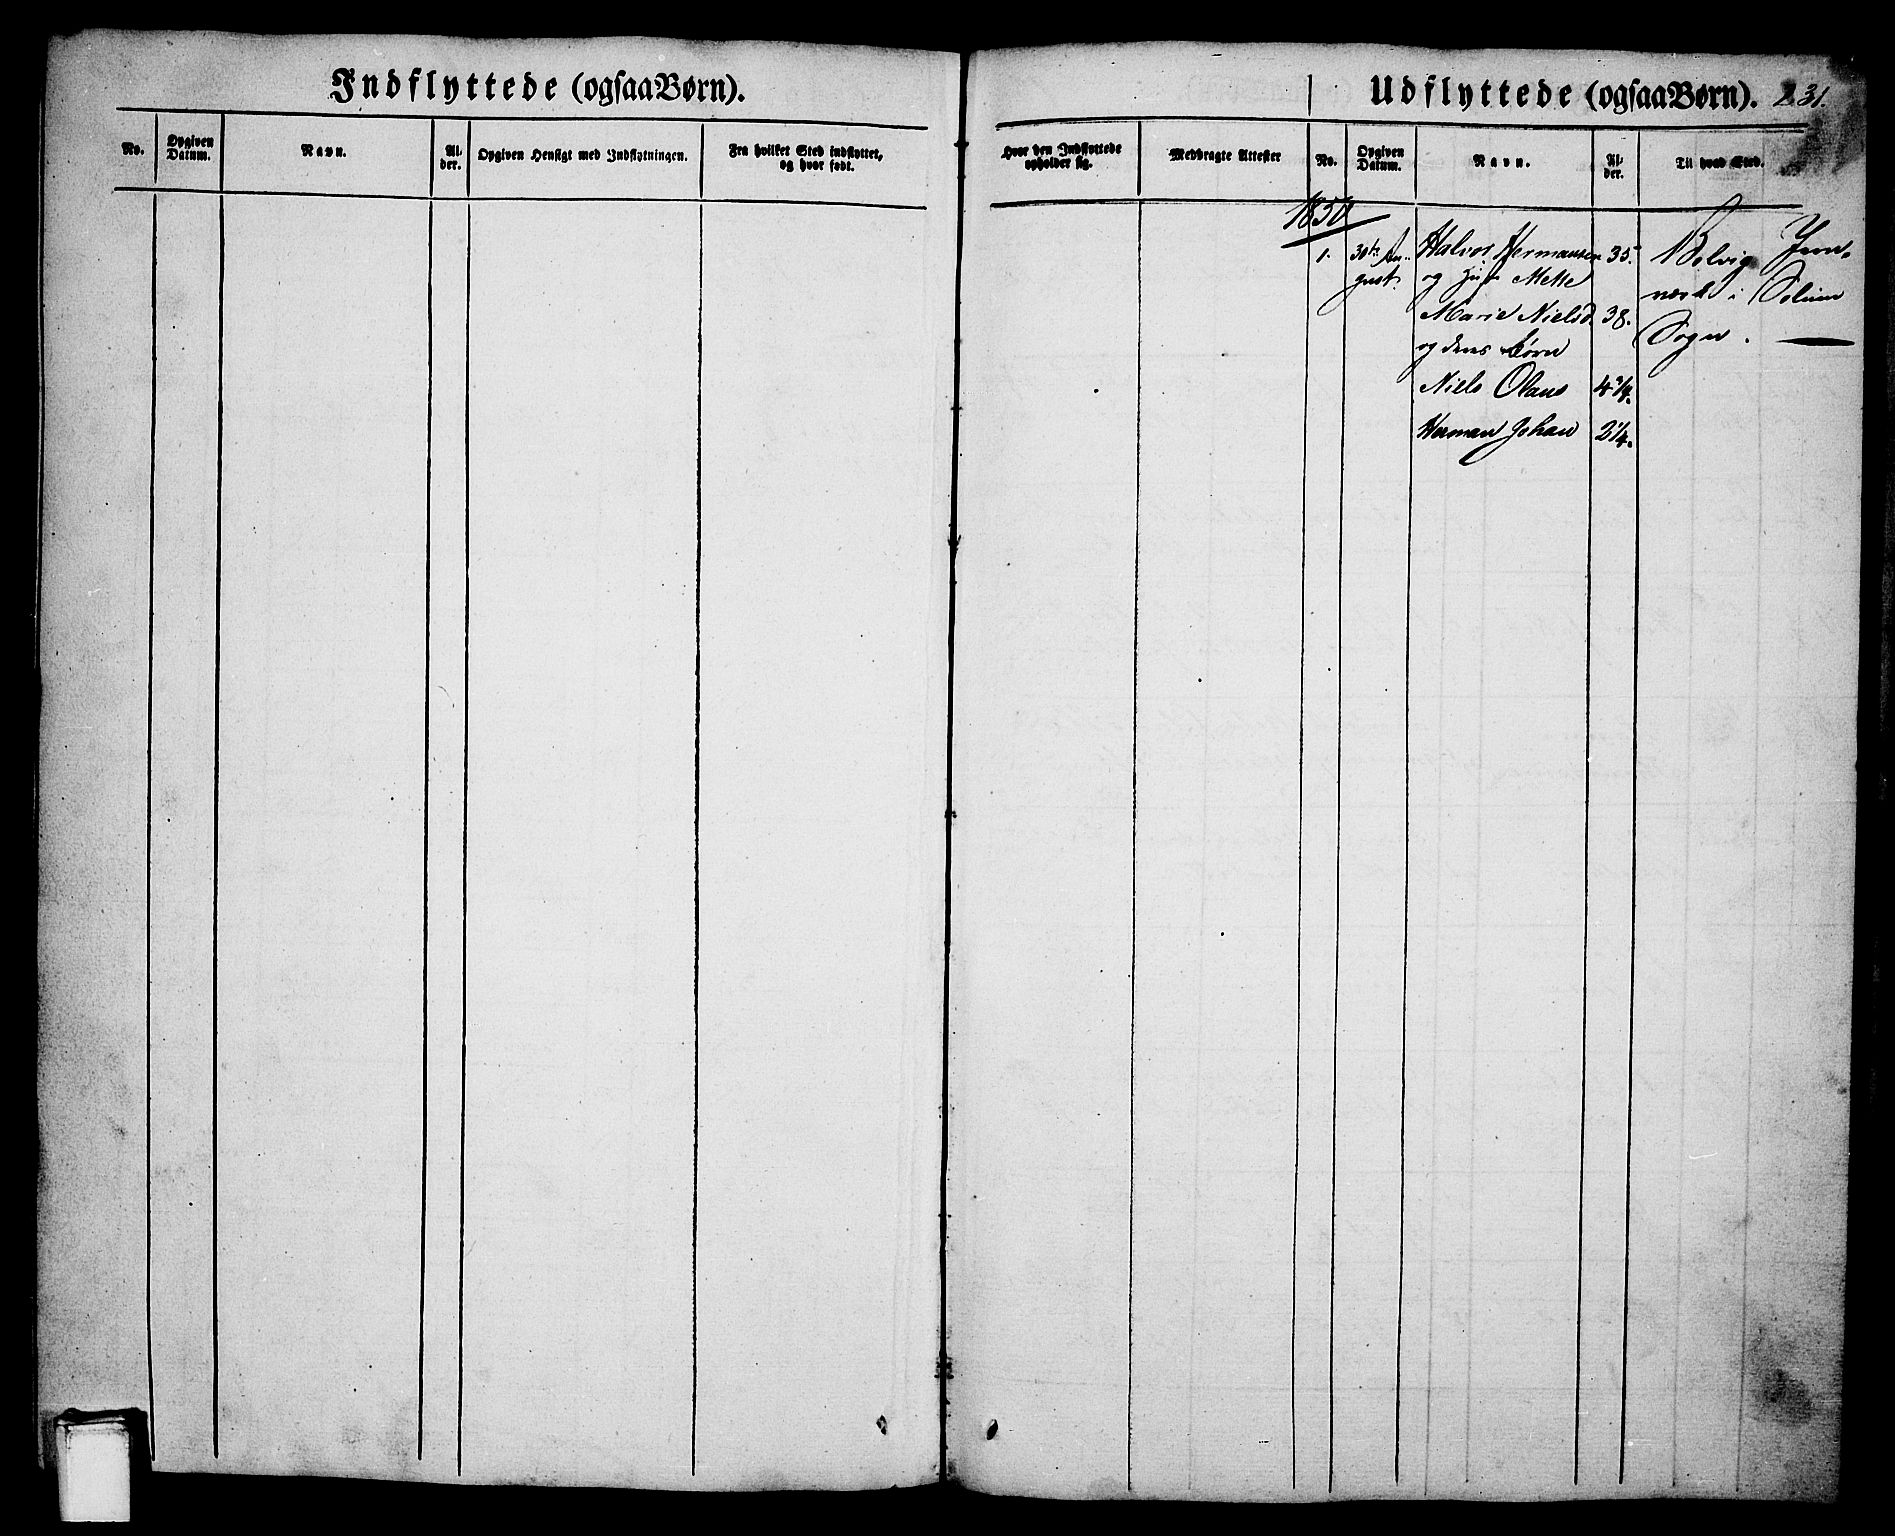 Indflyttede (ogsaa Børn).
No.
Opgiven
Datum.
Navn.
Al-
der.
Opgiven Hensigt med Indflytningen.
Fra hvilket Sted indflyttet,
og hvor født.
Udflyttede (ogsaa Børn). 231.
Hvor den Indflyttede
opholder sig.
Medbragte Attester
No.
Opgiven
Datum.
Navn.
Al-
der.
Til hvad Sted.
1850
1. 30te Au- Halvor Hermansen 35. Bolvig Jern-
gust. og Mette værk i Solum
Marie Nielsd. 38. Sogn.
og deres børn
Niels Olaus
Herman Johan 2 1/4.